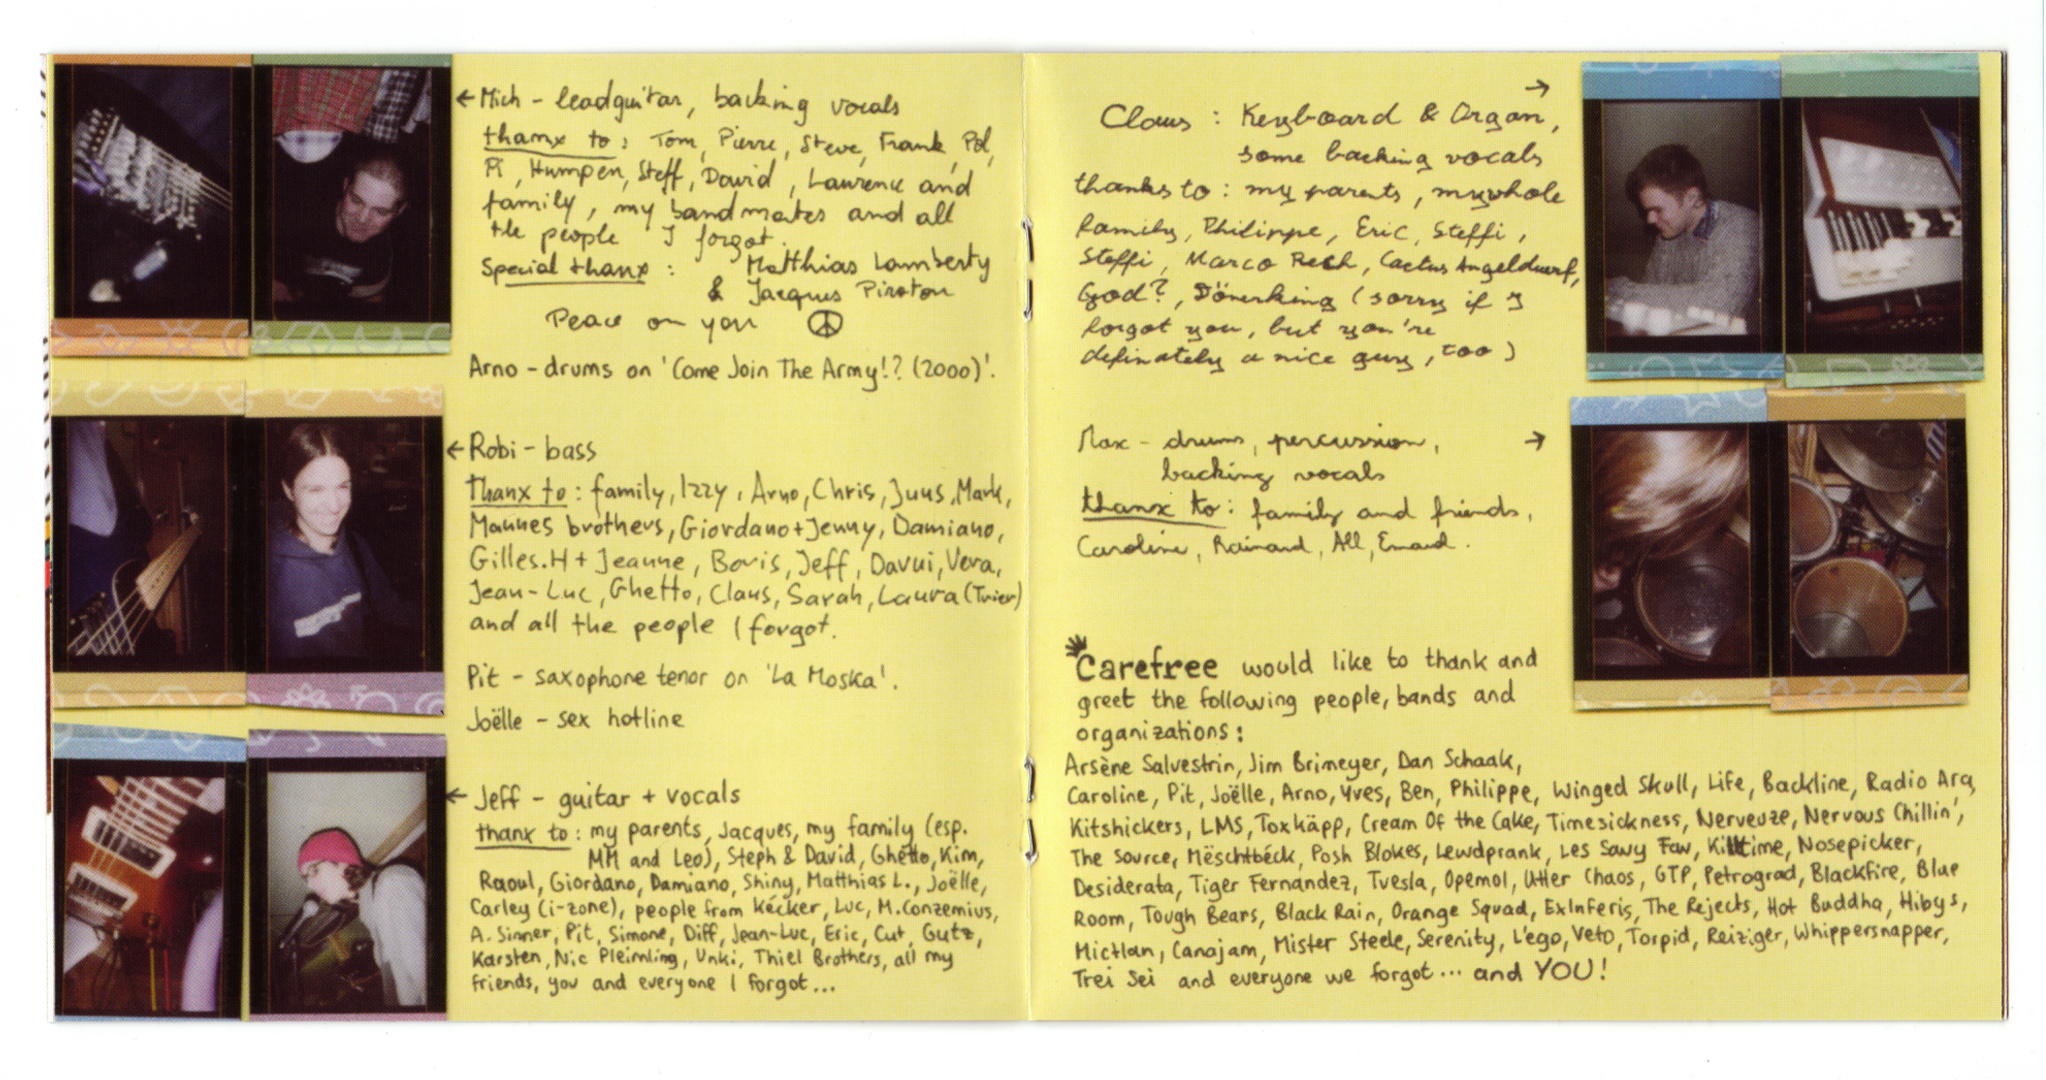 ← Mich - leadguitar, backing vocals
thanx to: Tom, Pierre, Steve, Frank, Pol,
Pi, Humpen, Steff, David, Laurence and
family, my bandmates and all
the people I forgot.
Special thanx: Matthias Lamberty
& Jacques Pirotou
Peace on you
Arno - drums on 'Come Join The Army!? (2000)'.
← Robi - bass
Thanx to: family, Izzy, Arno, Chris, Juus, Mark,
Mannes brothers, Giordano + Jenny, Damiano,
Gilles.H + Jeanne, Boris, Jeff, Davui, Vera,
Jean-Luc, Ghetto, Claus, Sarah, Laura (Trier)
and all the people I forgot.
Pit - saxophone tenor on 'La Moska'.
Joëlle - sex hotline
← Jeff - guitar + vocals
thanx to: my parents, Jacques, my family (esp.
MM and Leo), Steph & David, Ghetto, Kim,
Raoul, Giordano, Damiano, Shiny, Matthias L., Joëlle,
Carley (i-zone), people from Kécker, Luc, M.Conzemius,
A. Sinner, Pit, Simone, Diff, Jean-Luc, Eric, Cut, Gutz,
Karsten, Nic Pleimling, Unki, Thiel Brothers, all my
friends, you and everyone I forgot...
→
Claus : Keyboard & Organ,
some backing vocals
thanks to : my parents, my whole
family, Philippe, Eric, Steffi,
Steffi, Marco Rech, Cactus Angeldwarf,
God?, Dönerking (sorry if I
forgot you, but you're
definately a nice guy, too)
Max - drums, percussion, →
backing vocals
thanx to: family and friends,
Caroline, Rainard, All, Emard.
Carefree would like to thank and
greet the following people, bands and
organizations:
Arsène Salvestrin, Jim Brimeyer, Dan Schaak,
Caroline, Pit, Joëlle, Arno, Yves, Ben, Philippe, Winged Skull, Life, Backline, Radio Ara,
Kitshickers, LMS, Toxkäpp, Cream Of the Cake, Timesickness, Nerveuze, Nervous Chillin',
The Source, Mëschtbéck, Posh Blokes, Lewdprank, Les Savy Fav, Killtime, Nosepicker,
Desiderata, Tiger Fernandez, Tvesla, Opemol, Utter Chaos, GTP, Petrograd, Blackfire, Blue
Room, Tough Bears, Black Rain, Orange Squad, ExInferis, The Rejects, Hot Buddha, Hibys,
Mictlan, Canajam, Mister Steele, Serenity, L'ego, Veto, Torpid, Reiziger, Whippersnapper,
Trei Sei and everyone we forgot... and YOU!